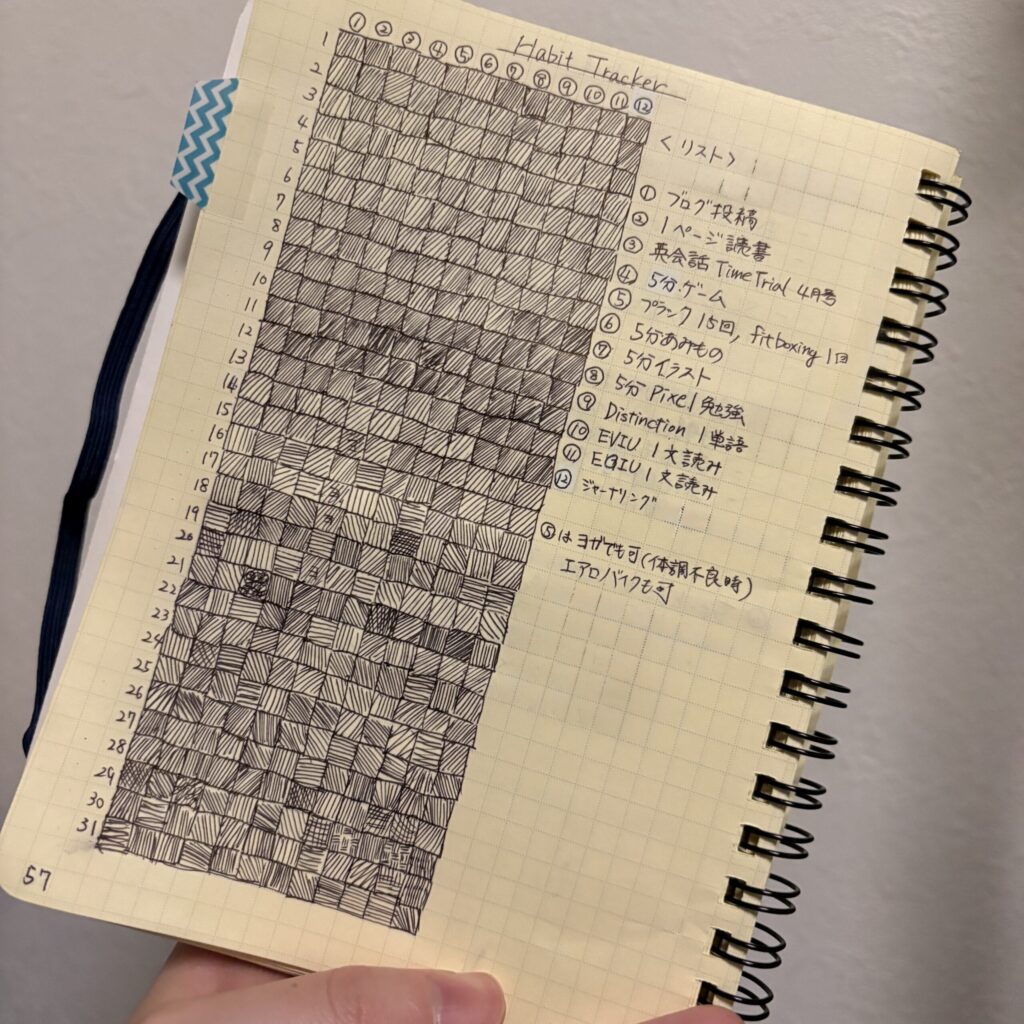 Habit Tracker
① ② ③ ④ ⑤ ⑥ ⑦ ⑧ ⑨ ⑩ ⑪ ⑫
1
2
3
4
5
6
7
8
9
10
11
12
13
14
15
16
17
18
19
20
21
22
23
24
25
26
27
28
29
30
31
<リスト>
① ブログ投稿
② 1ページ読書
③ 英会話 Time Trial 4月号
④ 5分ゲーム
⑤ プランク15回, fitboxing 1回
⑥ 5分あみもの
⑦ 5分イラスト
⑧ 5分 Pixel 勉強
⑨ Distinction 1単語
⑩ EVIU 1文読み
⑪ EGIU 1文読み
⑫ ジャーナリング
⑤はヨガでも可(体調不良時)
エアロバイクも可
57